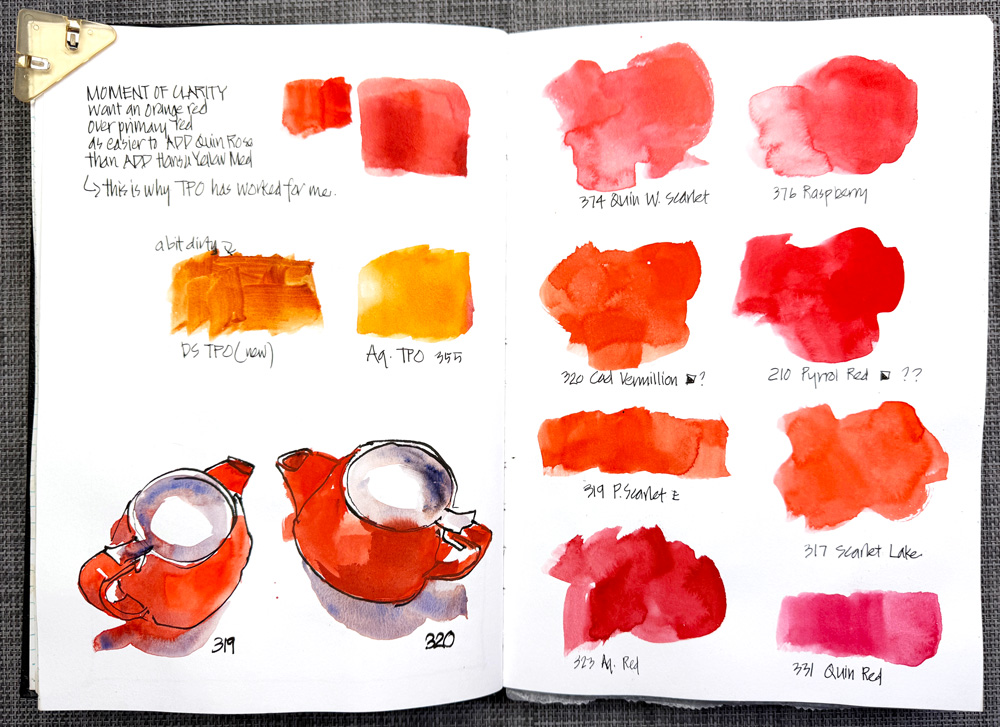 MOMENT OF CLARITY
want an orange red
over primary red
as easier to ADD Quin Rose
than ADD Hansa Yellow Med
↳ this is why TPO has worked for me.
a bit dirty
DS TPO (new)
Aq. TPO 355
319
320
374 Quin W. Scarlet
376 Raspberry
320 Cad Vermillion ?
210 Pyrrol Red ??
319 P. Scarlet E
317 Scarlet Lake
323 Aq. Red
331 Quin Red